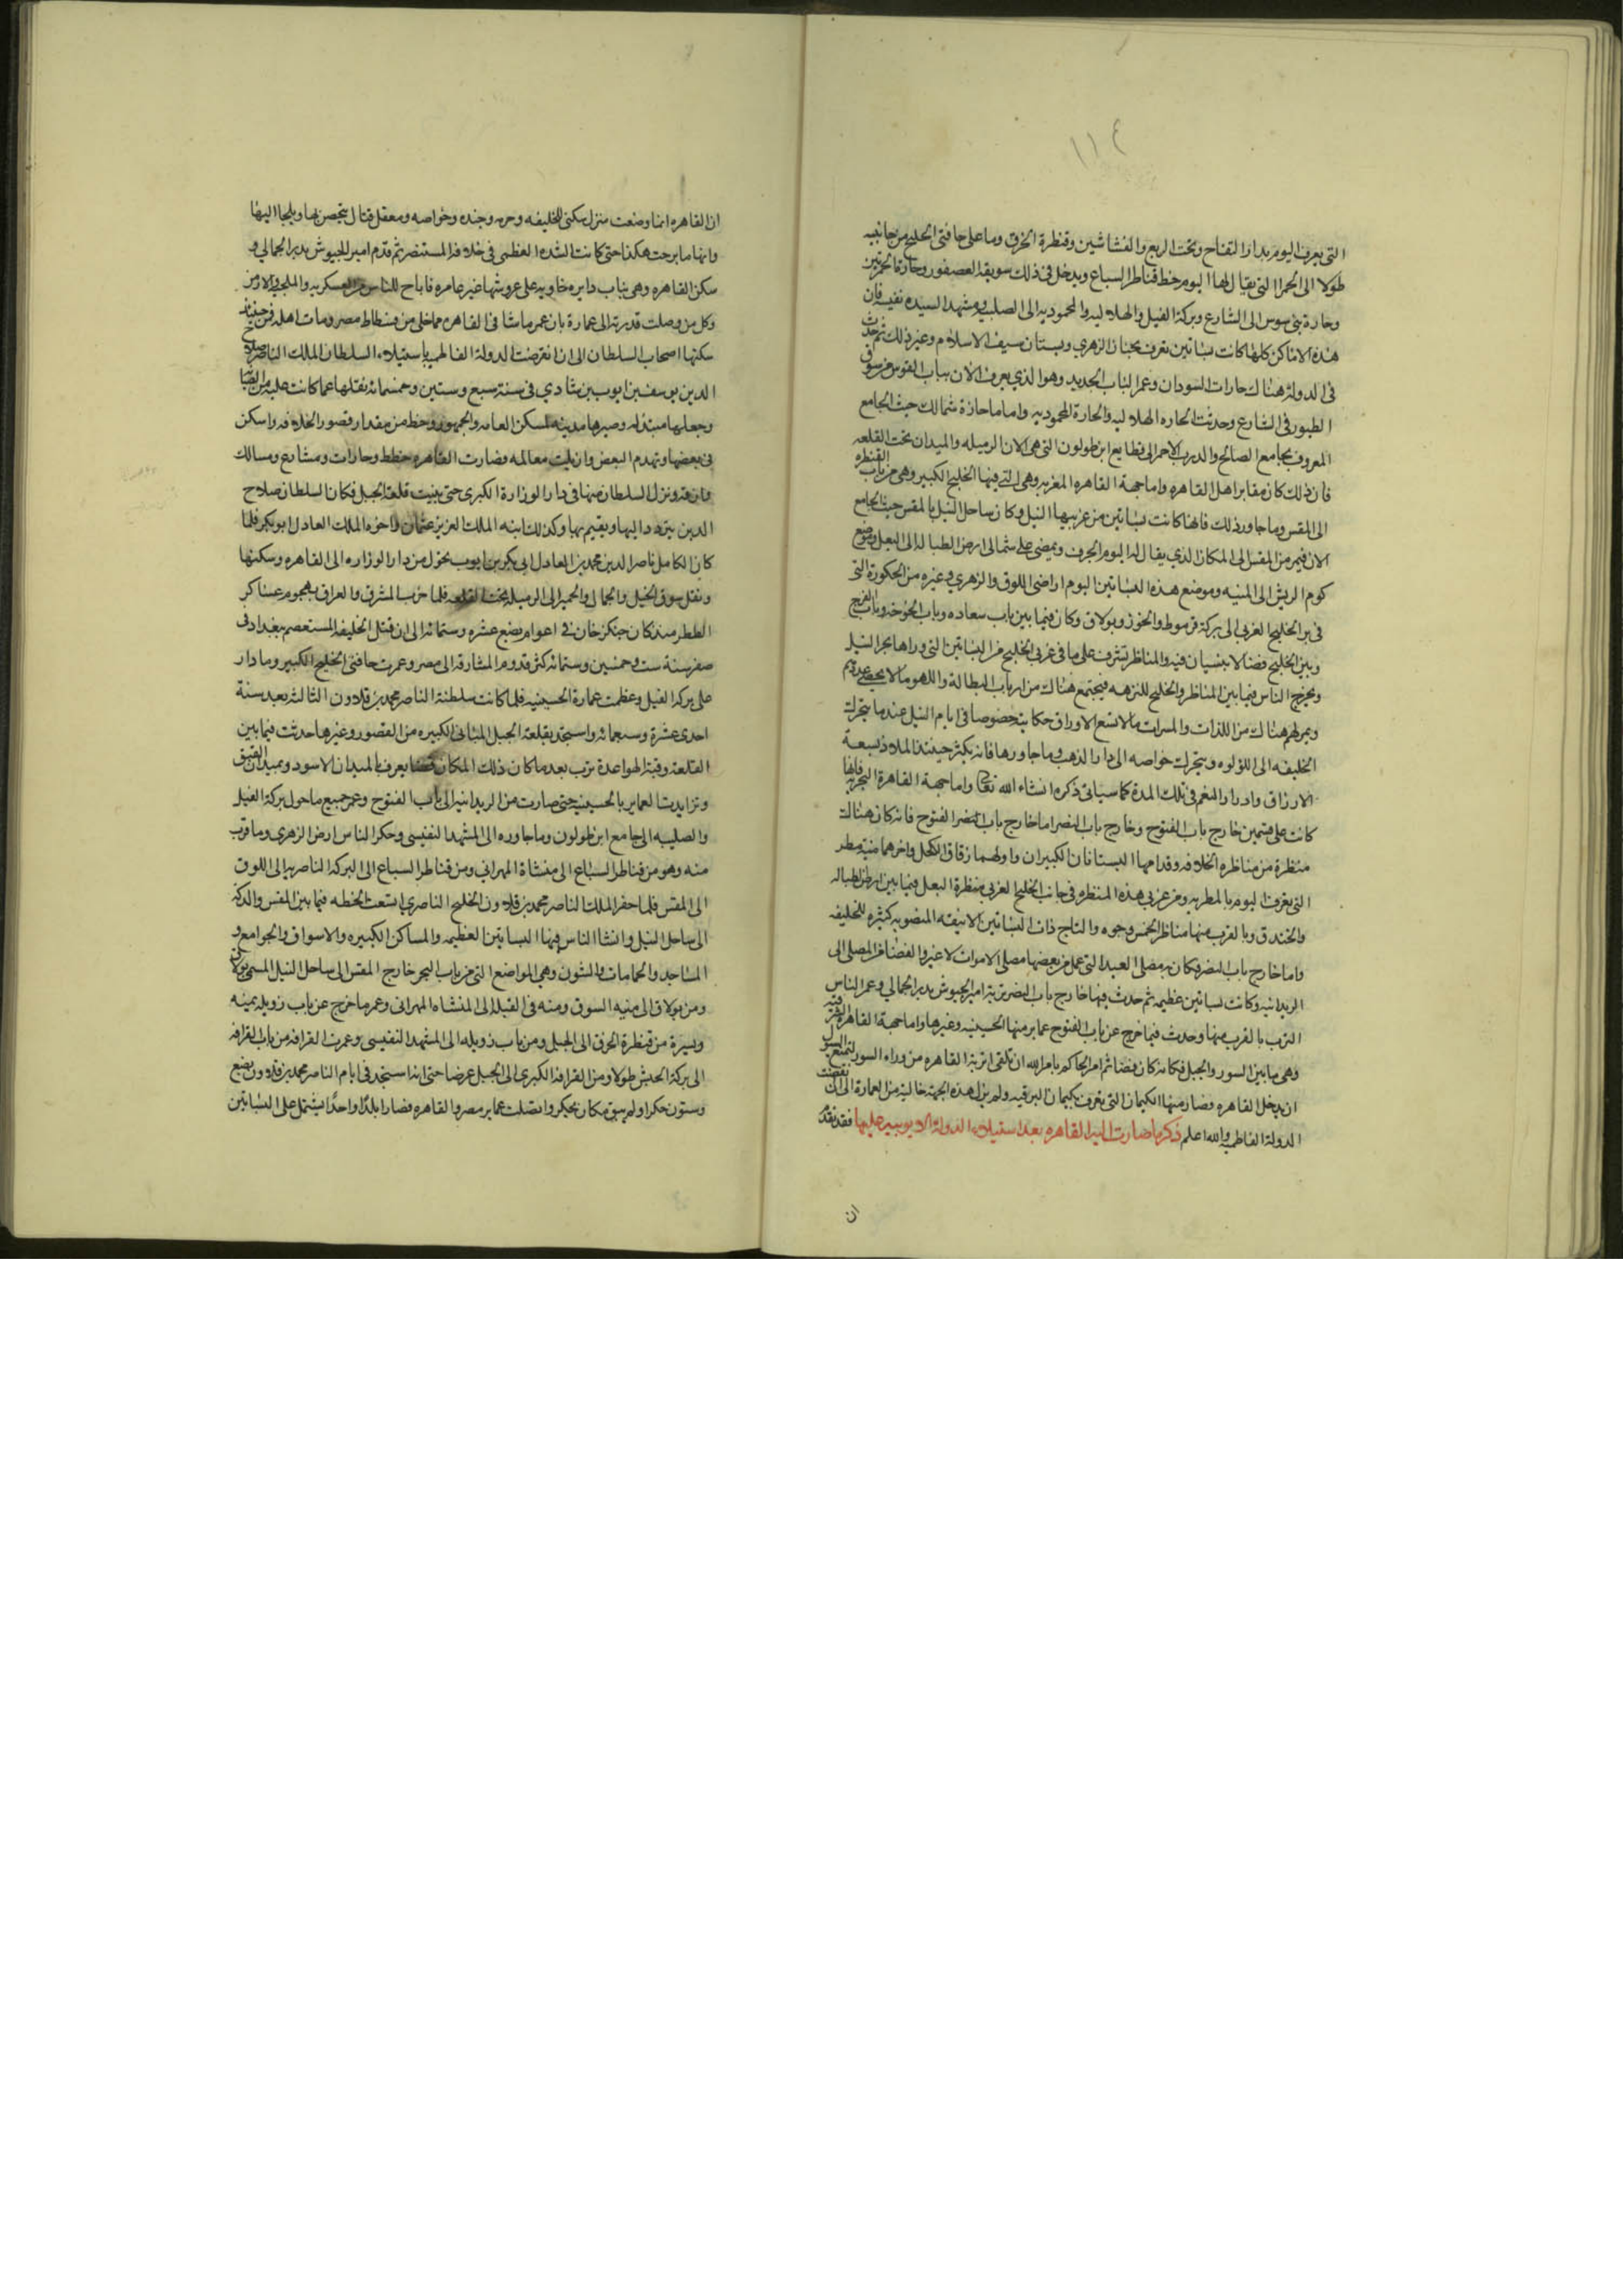 ١١٤
التى يعرف اليوم بدار التفاح وتحت الربع والقشاشين وقنطرة الخرق وما على حافتى الخليج من جانبيه
طولا الى الحمرا التى يقال لها اليوم خط قناطر السباع ويدخل فى ذلك سويقة العصفور وحارة الحمزيين
وحارة بنى سوس الى الشارع وبركة الفيل والهلاليه والمحموديه الى الصليبه ومشهد السيده نفيسه فان
هذه الاماكن كلها كانت بساتين تعرف بجنان الزهرى وبستان سيف الاسلام وغير ذلك ثم حدث
فى الدولة هناك حارات السودان وعمر الباب الجديد وهو الذى يعرف الان بباب القوس من سوق
الطيور فى الشارع وحدثت الحاره الهلاليه والحارة المحموديه واما ما حازه شمالك حيث الجامع
المعروف بجامع الصالح والدرب الاحمر الى قطايع ابن طولون التى هى الان الرميله والميدان تحت القلعه
فان ذلك كان مقابر اهل القاهره واما جهة القاهره الغربيه وهى التى فيها الخليج الكبير وهى من باب القنطره
الى المقس وما جاور ذلك فانها كانت بساتين من غربيها النيل وكان ساحل النيل بالمقس حيث الجامع
الان فيمر من المقس الى المكان الذى يقال له اليوم الجرف ويمضى على شمالى ارض الطباله الى البعل وموضع
كوم الريش الى المنيه وموضع هذه البساتين اليوم اراضى اللوق والزهرى وغيره من الحكورة التى
فى بر الخليج الغربى الى بركة قرموط والخور وبولاق وكان فيما بين باب سعاده وباب الخوخه وباب الفرج
وبين الخليج فضا لا بنيان فيه والمناظر تشرف على ما فى غربى الخليج من البساتين التى وراها بحر النيل
ويخرج الناس فيما بين المناظر والخليج للنزهه فيجتمع هناك من ارباب البطالة واللهو ما لا يحصى عددهم
ويمر لهم هناك من اللذات والمسرات ما لا تسع الاوراق حكايته خصوصا فى ايام النيل عندما يتحرك
الخليفه الى اللؤلوه ويتحرك خواصه الى دار الذهب وما جاورها فانه يكثر حينئذ الملاذ بسعة
الارزاق وادرار النعم فى تلك المدة كما سياتى ذكره انشاء الله تعالى واما جهة القاهرة البحريه فانها
كانت على قسمين خارج باب الفتوح وخارج باب النصر اما خارج باب الفتوح فانه كان هنالك
منظرة من مناظره الخلافه وقدامها البستانان الكبيران واولهما زقاق الكحل واخرهما منية مطر
التى يعرف اليوم بالمطريه ومن غربى هذه المنظره فى جانب الخليج الغربى منظرة البعل فيما بين ارض الطباله
والخندق وبالقرب منها مناظر الخمس وجوه والتاج ذات البساتين الانيقه المنصوبه كثيره للخليفه
واما خارج باب النصر فكان به مصلى العيد التى عمل من بعضها مصلى الاموات لا غير والفضا من المصلى الى
الريدانيه وكانت بساتين عظيمه ثم حدث فيها خارج باب النصر تربة امير الجيوش بدر الجمالى وعمر الناس
الترب بالقرب منها وحدث فيما خرج عن باب الفتوح عماير منها الحسينيه وغيرها واما جهة القاهره الشرقيه
وهى ما بين السور والجبل فكانه كان فضا ثم امر الحاكم بامر الله ان تلقى اتربة القاهره من وراء السور لتمنع السيل
ان يدخل القاهره فصار منها الكيمان التى تعرف بكيمان البرقيه ولم يزل هذه الجهة خالية من العمارة الى ان انقضت
الدولة الفاطميه والله اعلم ذكر ما صارت اليه القاهره بعد استيلاء الدولة الايوبيه عليها فقد تقدم
ان
ان القاهره انما وضعت منزل سكنى للخليفه وحرمه وجنده وخواصه ومعقل قتال يتحصن بها ويلجا اليها
وانها ما برحت هكذا حتى كانت الشده العظمى فى خلافة المستنصر ثم قدم امير الجيوش بدر الجمالى و
سكن القاهره وهى يباب دايره خاويه على عروشها غير عامره فاباح للناس من العسكريه والملحيه والارمن
وكل من وصلت قدرته الى عمارة بان عمر ما شا فى القاهره مما خلى من فسطاط مصر ومات اهله فمن حينئذ
سكنها اصحاب السلطان الى ان انقرضت الدولة الفاطميه باستيلاء السلطان الملك الناصر صلاح
الدين يوسف بن ايوب بن شادى فى سنة سبع وستين وخمسمائه فنقلها عما كانت عليه من الصيانه
وجعلها مبتذله وصيرها مدينه لسكن العامه والجمهور وحط من مقدار قصور الخلافه واسكن
فى بعضها وتهدم البعض وازيلت معالمه فصارت القاهره خطط وحارات ومشارع ومسالك
وازقه ونزل السلطان منها فى دار الوزارة الكبرى حتى بنيت قلعة الجبل فكان السلطان صلاح
الدين يتردد اليها ويقيم بها وكذلك ابنه الملك العزيز عثمان واخوه الملك العادل ابو بكر فلما
كان الكامل ناصر الدين محمد بن العادل ابى بكر بن ايوب تحول من دار الوزاره الى القاهره وسكنها
ونقل سوق الخيل والجمال والحمير الى الرميله تحت القلعه فلما خرب المشرق والعراق بهجوم عساكر
الططر منذ كان جنكز خان فى اعوام بضع عشره وستمائه الى ان قتل الخليفه المستعصم ببغداد فى
صفر سنة ست وخمسين وستمائه كثر قدوم المشارقة الى مصر وعمرت حافتى الخليج الكبير وما دار
على بركة الفيل وعظمت عمارة الحسينيه فلما كانت سلطنة الناصر محمد بن قلاوون الثالثه بعد سنة
احدى عشرة وسبعمائه واستجد بقلعة الجبل المبانى الكبيره من القصور وغيرها حدثت فيما بين
القلعة وقبة الهوا عدة ترب بعد ما كان ذلك المكان فضا يعرف بالميدان الاسود وميدان القبق
وتزايدت العماير بالحسينيه حتى صارت من الريدانيه الى باب الفتوح وعمر جميع ما حول بركة الفيل
والصليبه الى جامع ابن طولون وما جاوره الى المشهد النفيسى وحكر الناس ارض الزهرى وما قرب
منه وهو من قناطر السباع الى منشاة المهرانى ومن قناطر السباع الى البركة الناصريه الى اللوق
الى المقس فلما حفر الملك الناصر محمد بن قلاوون الخليج الناصرى اتسعت الخطه فيما بين المقس والدكه
الى ساحل النيل وانشا الناس فيها البساتين العظيمه والمساكن الكبيره والاسواق والجوامع و
المساجد والحمامات والشون وهى المواضع التى من باب البحر خارج المقس الى ساحل النيل المسمى بولاق
ومن بولاق الى منيه السوق ومنه فى القبله الى المنشاه المهرانى وعمر ما خرج عن باب زويله يمينه
ويسرة من قنطرة الخرق الى الجبل ومن باب زويله الى المشهد النفيسى وعمرت القرافه من باب القرافه
الى بركة الحبش طولا ومن القرافه الكبرى الى الجبل عرضا حتى انه استجد فى ايام الناصر محمد بن قلاوون بضع
وستون حكرا ولم يبق مكان يحكر واتصلت عماير مصر والقاهره فصارا بلدا واحدا يشتمل على البساتين